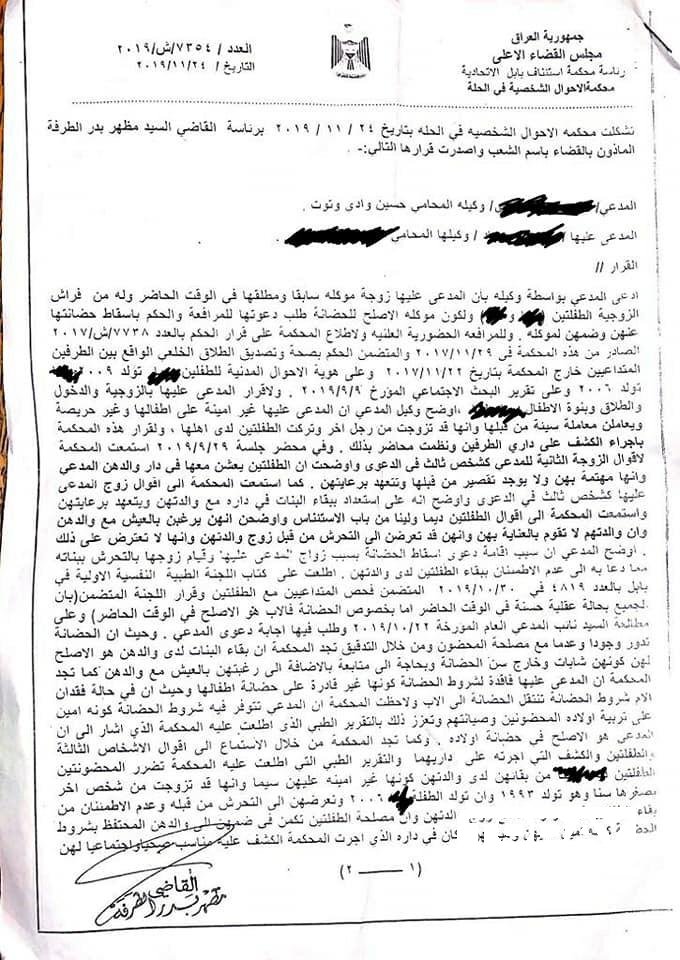 جمهورية العراق
مجلس القضاء الاعلى
رئاسة محكمة استئناف بابل الاتحادية
محكمة الاحوال الشخصية في الحلة
العدد / ٧٣٥٤/ش/٢٠١٩
التاريخ / ٢٠١٩/١١/٢٤
تشكلت محكمه الاحوال الشخصيه في الحله بتاريخ ٢٤ / ١١ / ٢٠١٩ برئاسة القاضي السيد مظهر بدر الطرفة
الماذون بالقضاء باسم الشعب واصدرت قرارها التالي:-
المدعي/ / وكيله المحامي حسين وادي وتوت .
المدعى عليها / وكيلها المحامي .
القرار //
ادعى المدعي بواسطة وكيله بان المدعى عليها زوجة موكله سابقا ومطلقها في الوقت الحاضر وله من فراش
الزوجية الطفلتين ( و ) ولكون موكله الاصلح للحضانة طلب دعوتها للمرافعة والحكم باسقاط حضانتها
عنهن وضمهن لموكله . وللمرافعه الحضورية العلنيه ولاطلاع المحكمة على قرار الحكم بالعدد ٧٧٣٨/ش/٢٠١٧
الصادر من هذه المحكمة في ٢٠١٧/١١/٢٩ والمتضمن الحكم بصحة وتصديق الطلاق الخلعي الواقع بين الطرفين
المتداعيين خارج المحكمة بتاريخ ٢٠١٧/١١/٢٢ وعلى هوية الاحوال المدنية للطفلين تولد ٢٠٠٩
تولد ٢٠٠٦ وعلى تقرير البحث الاجتماعي المؤرخ ٢٠١٩/٩/٩ . ولاقرار المدعى عليها بالزوجية والدخول
والطلاق وبنوة الاطفال ، اوضح وكيل المدعي ان المدعى عليها غير امينة على اطفالها وغير حريصة
ويعاملن معاملة سيئة من قبلها وانها قد تزوجت من رجل اخر وتركت الطفلتين لدى اهلها ، ولقرار هذه المحكمة
باجراء الكشف على داري الطرفين ونظمت محاضر بذلك . وفي محضر جلسة ٢٠١٩/٩/٢٩ استمعت المحكمة
لاقوال الزوجة الثانية للمدعي كشخص ثالث في الدعوى واوضحت ان الطفلتين يعشن معها في دار والدهن المدعي
وانها مهتمة بهن ولا يوجد تقصير من قبلها وتتعهد برعايتهن . كما استمعت المحكمة الى اقوال زوج المدعى
عليها كشخص ثالث في الدعوى واوضح انه على إستعداد ببقاء البنات في داره مع والدتهن ويتعهد برعايتهن
واستمعت المحكمة الى اقوال الطفلتين ديما ولينا من باب الاستئناس واوضحن انهن يرغبن بالعيش مع والدهن
وان والدتهم لا تقوم بالعناية بهن وانهن قد تعرضن الى التحرش من قبل زوج والدتهن وانها لا تعترض على ذلك
. اوضح المدعي ان سبب اقامة دعوى اسقاط الحضانة بسبب زواج المدعى عليها وقيام زوجها بالتحرش ببناته
مما دعا به الى عدم الاطمئنان ببقاء الطفلتين لدى والدتهن . اطلعت على كتاب اللجنة الطبية النفسية الاولية في
بابل بالعدد ٤٨١٩ في ٢٠١٩/١٠/٣٠ المتضمن فحص المتداعيين مع الطفلتين وقرار اللجنة المتضمن(بان
الجميع بحالة عقلية حسنة في الوقت الحاضر اما بخصوص الحضانة فالاب هو الاصلح في الوقت الحاضر) وعلى
مطالعة السيد نائب المدعي العام المؤرخة ٢٠١٩/١٠/٢٢ وطلب فيها اجابة دعوى المدعي . وحيث ان الحضانة
تدور وجودا وعدما مع مصلحة المحضون ومن خلال التدقيق تجد المحكمة ان بقاء البنات لدى والدهن هو الاصلح
لهن كونهن شابات وخارج سن الحضانة وبحاجة الى متابعة بالاضافة الى رغبتهن بالعيش مع والدهن كما تجد
المحكمة ان المدعى عليها فاقدة لشروط الحضانة كونها غير قادرة على حضانة اطفالها وحيث ان في حالة فقدان
الام شروط الحضانة تنتقل الحضانة الى الاب ولاحظت المحكمة ان المدعي تتوفر فيه شروط الحضانة كونه امين
على تربية اولاده المحضونين وصيانتهم وتعزز ذلك بالتقرير الطبي الذي اطلعت عليه المحكمة الذي اشار الى ان
المدعي هو الاصلح في حضانة اولاده . وكما تجد المحكمة من خلال الاستماع الى اقوال الاشخاص الثالثة
والطفلتين والكشف التي اجرته على داريهما والتقرير الطبي التي اطلعت عليه المحكمة تضرر المحضونتين
الطفلتين من بقائهن لدى والدتهن كونها غير امينه عليهن سيما وانها قد تزوجت من شخص اخر
يصغرها سنا وهو تولد ١٩٩٣ وان تولد الطفلة ٢٠٠٦ وتعرضهن الى التحرش من قبله وعدم الاطمئنان من
بقاء الدتهن وان مصلحة الطفلتين تكمن في ضمهن الى والدهن المحتفظ بشروط
كان في داره الذي اجرت المحكمة الكشف عليه مناسب صحيا واجتماعيا لهن
(١ — ٢)
القاضي
مظهر بدر الطرفة